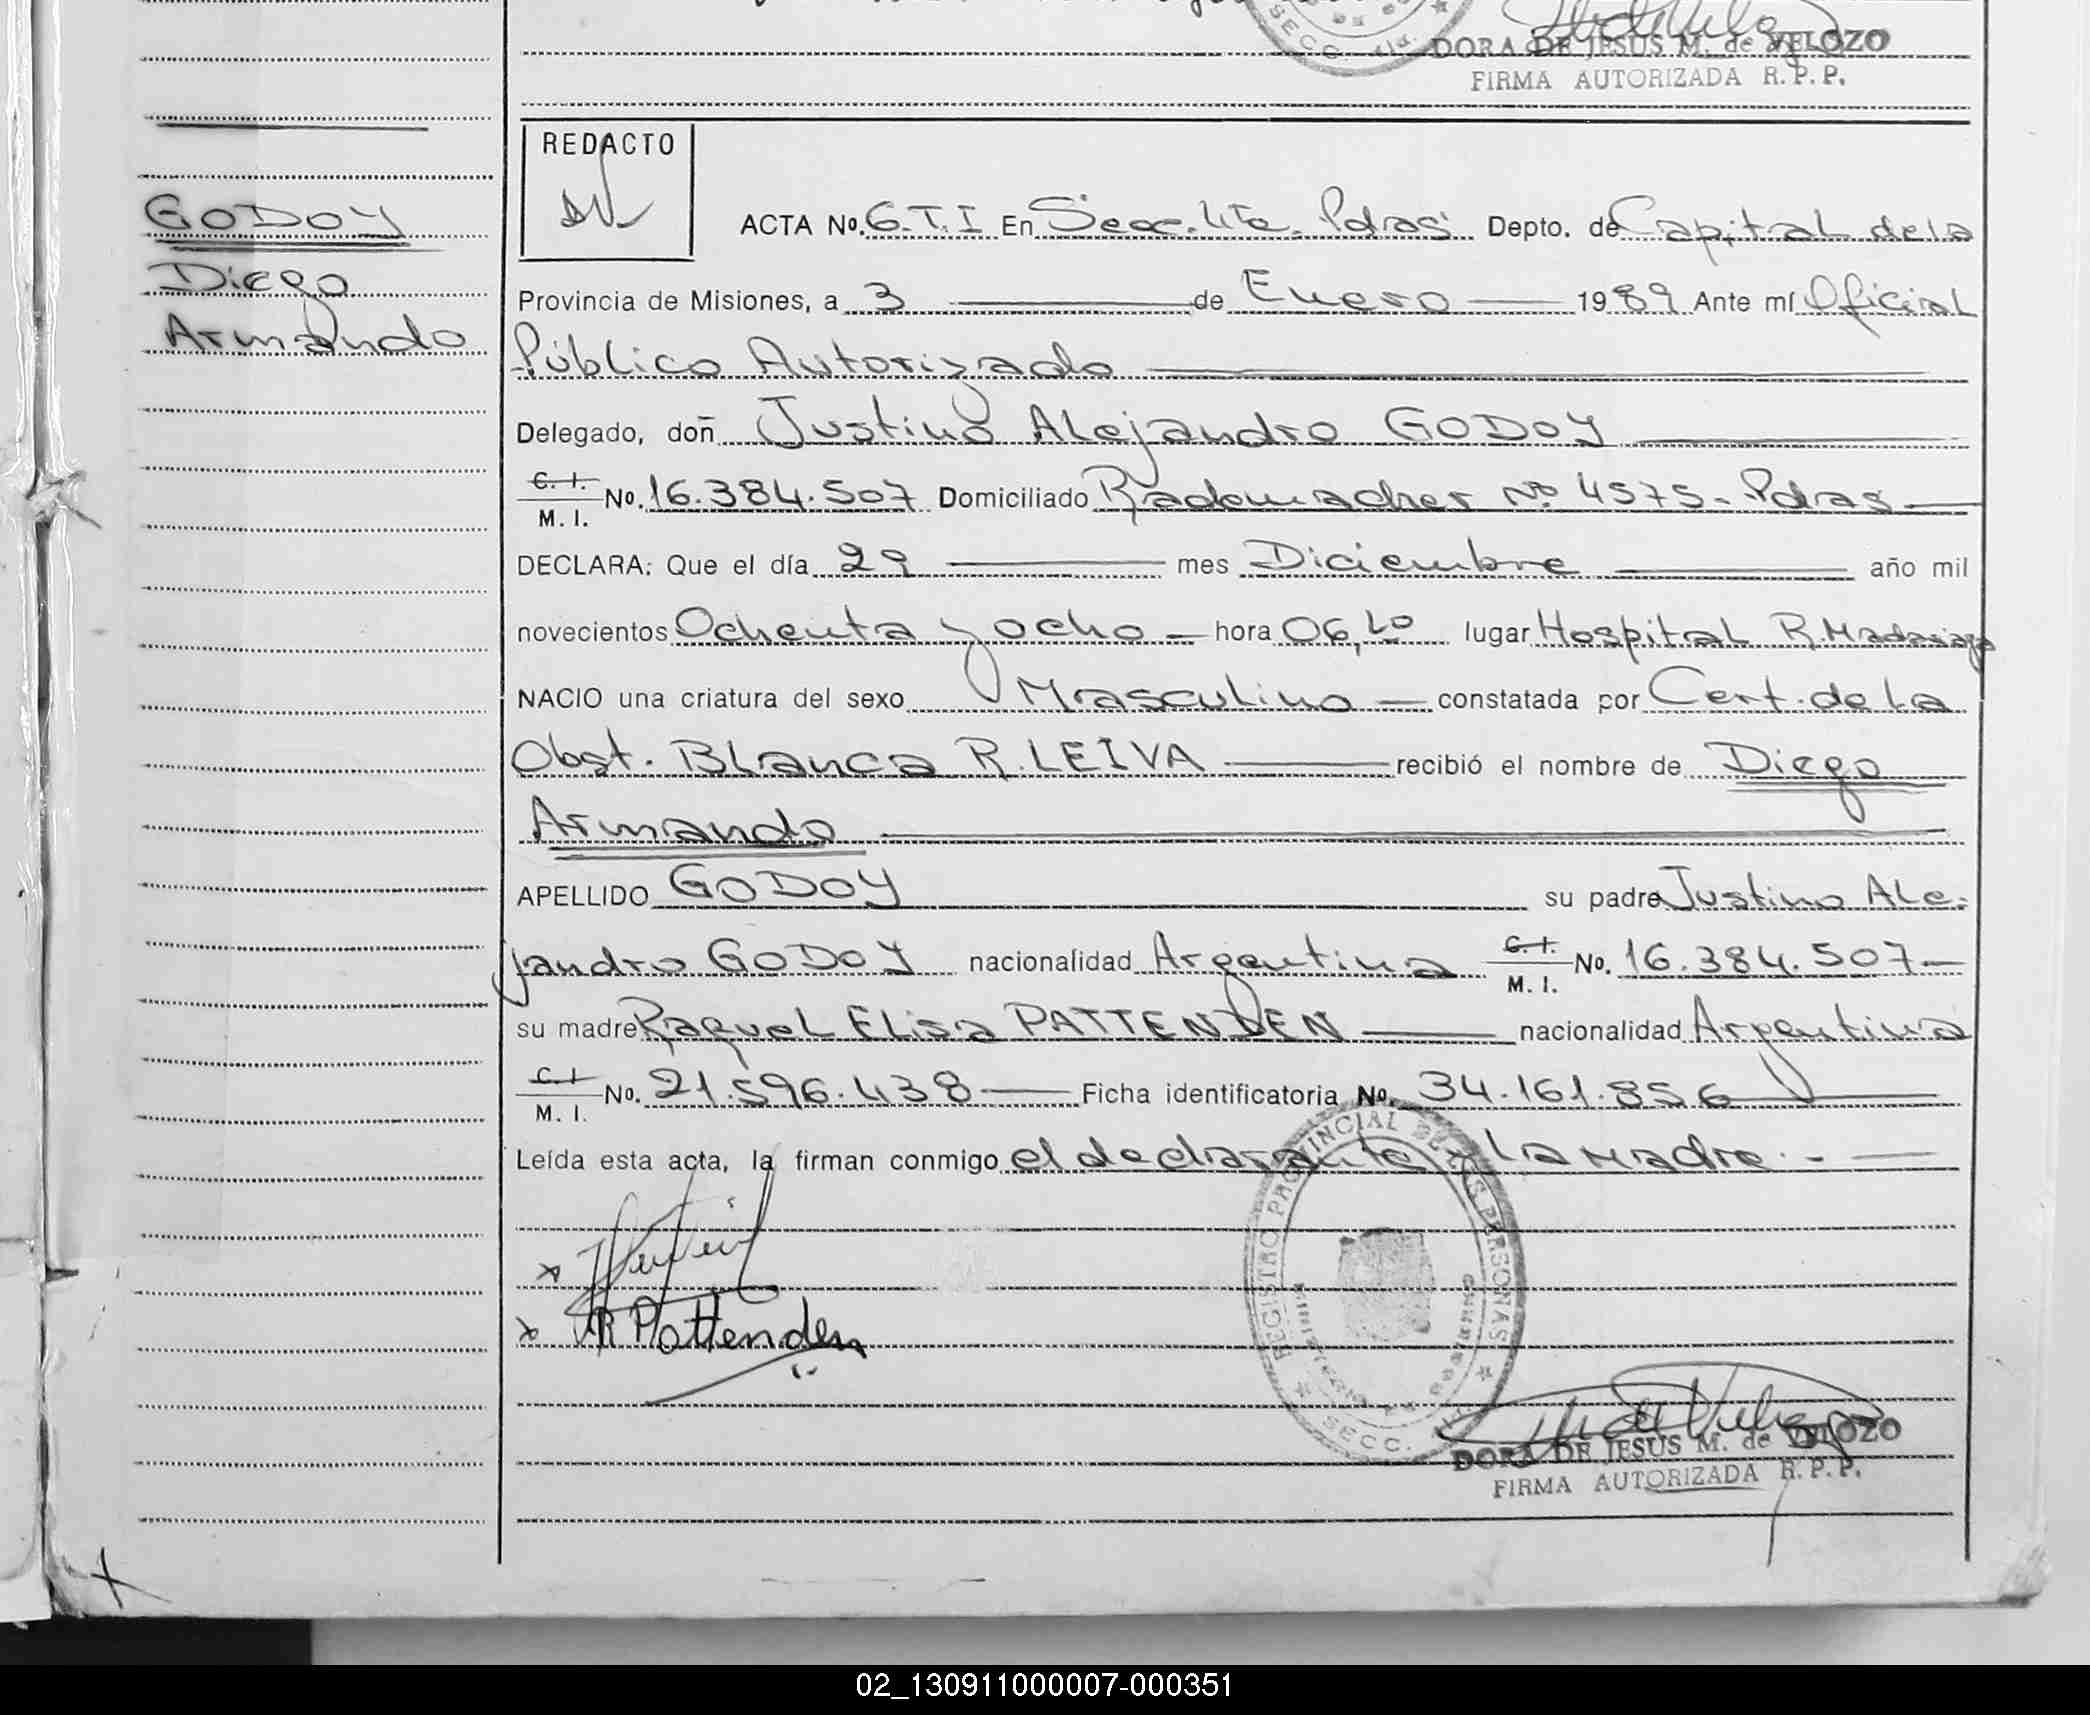 DORA DE JESUS M. de VELOZO
FIRMA AUTORIZADA R.P.P.
REDACTO
GODOY
Diego
Armando
ACTA No. 6.T.I En Secc. 4ta. Pdas Depto. de Capital de la
Provincia de Misiones, a 3 de Enero 1989 Ante mí Oficial
Público Autorizado
Delegado, doñ Justino Alejandro GODOY
C. I. M. I. No. 16.384.507 Domiciliado Rademacher Nº 4575 - Pdas
DECLARA: Que el día 29 mes Diciembre año mil
novecientos Ochenta y ocho hora 06, lugar Hospital R. Madariaga
NACIO una criatura del sexo Masculino constatada por Cert. de la
Obst. Blanca R. LEIVA recibió el nombre de Diego
Armando
APELLIDO GODOY su padre Justino Ale-
jandro GODOY nacionalidad Argentina C. I. M. I. No. 16.384.507
su madre Raquel Elisa PATTENDEN nacionalidad Argentina
C. I. M. I. No. 21.596.438 Ficha identificatoria No. 34.161.856
Leída esta acta, la firman conmigo el declarante y la madre.
R Pattenden
REGISTRO PROVINCIAL DE LAS PERSONAS
SECC.
DORA DE JESUS M. de VELOZO
FIRMA AUTORIZADA R.P.P.
02_130911000007-000351